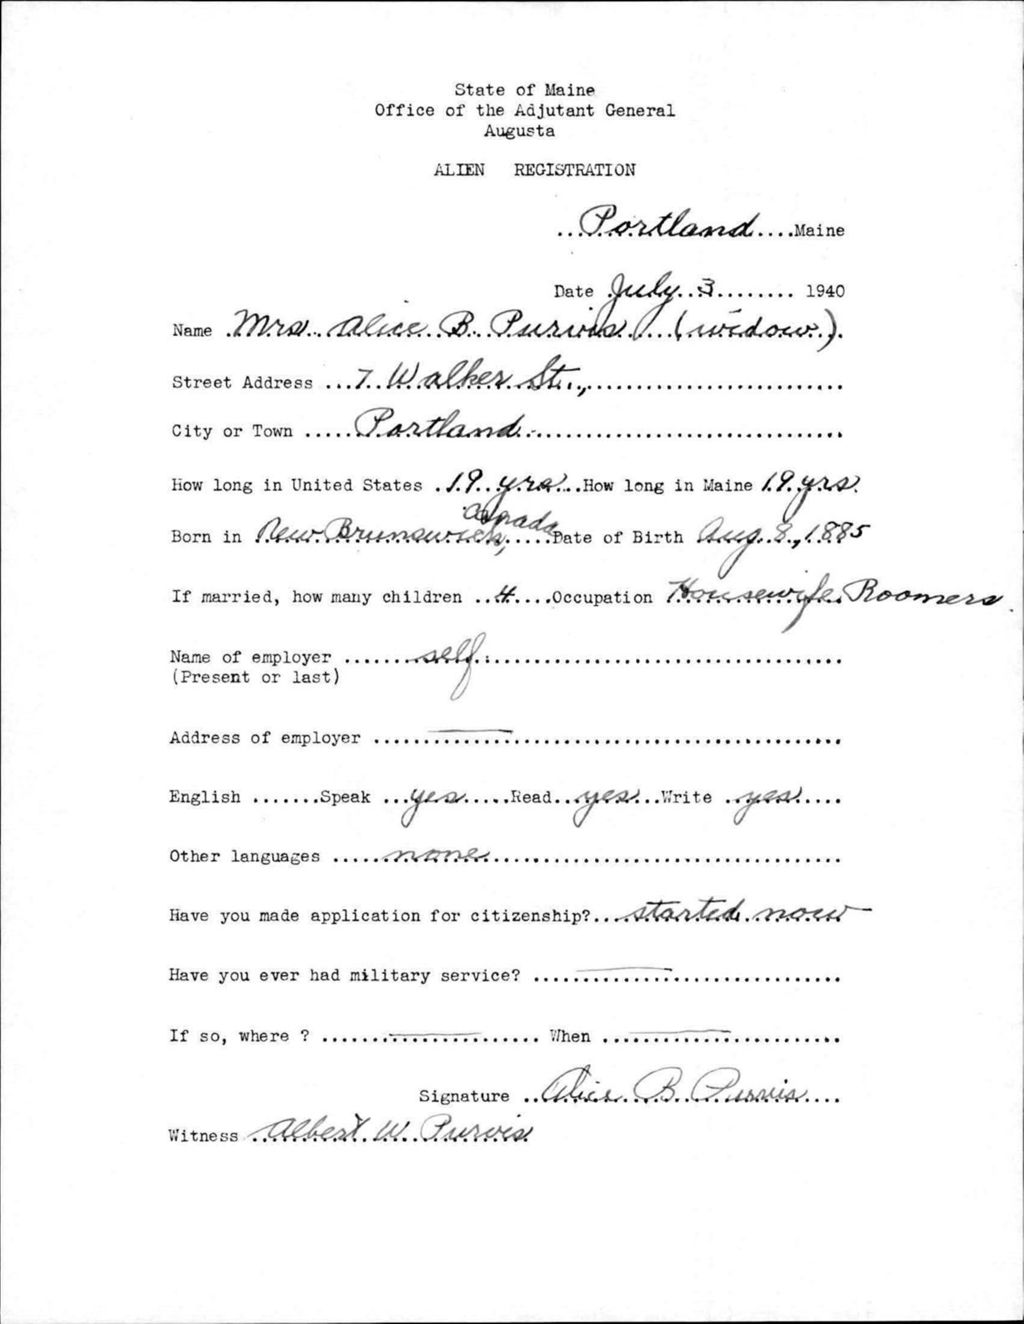 State of Maine
Office of the Adjutant General
Augusta
ALIEN REGISTRATION
..Portland....Maine
Date July 3 ........ 1940
Name Mrs. Alice B. Purvis (widow).
Street Address ...7 Walker St.,..........................
City or Town .....Portland.................................
How long in United States .19 yrs...How long in Maine 19 yrs.
Canada
Born in New Brunswick,....Date of Birth Aug. 8, 1885
If married, how many children ..4....Occupation Housewife Roomers
Name of employer .......self....................................
(Present or last)
Address of employer ..............................................
English .......Speak ...yes.....Read..yes...Write ..yes.....
Other languages .....none....................................
Have you made application for citizenship?...started now
Have you ever had military service? ..............................
If so, where ? ...................... When .......................
Signature ..Alice B. Purvis....
Witness Albert W. Purvis